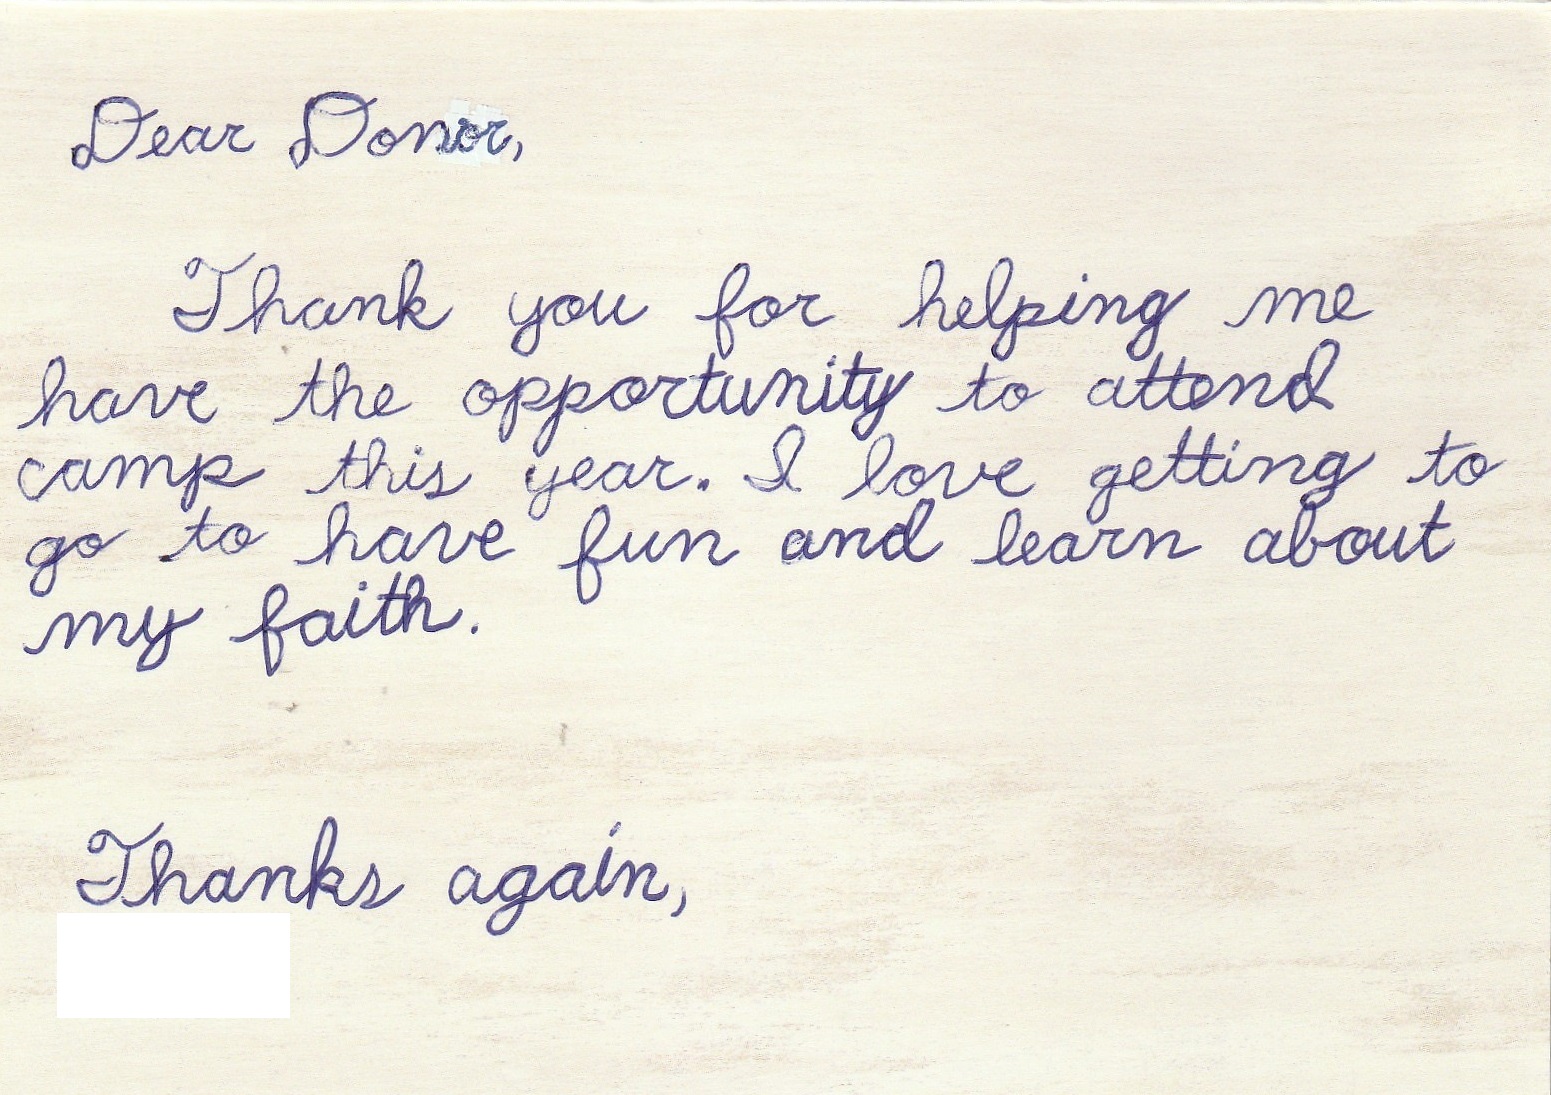 Dear Donor,
Thank you for helping me
have the opportunity to attend
camp this year. I love getting to
go to have fun and learn about
my faith.
Thanks again,